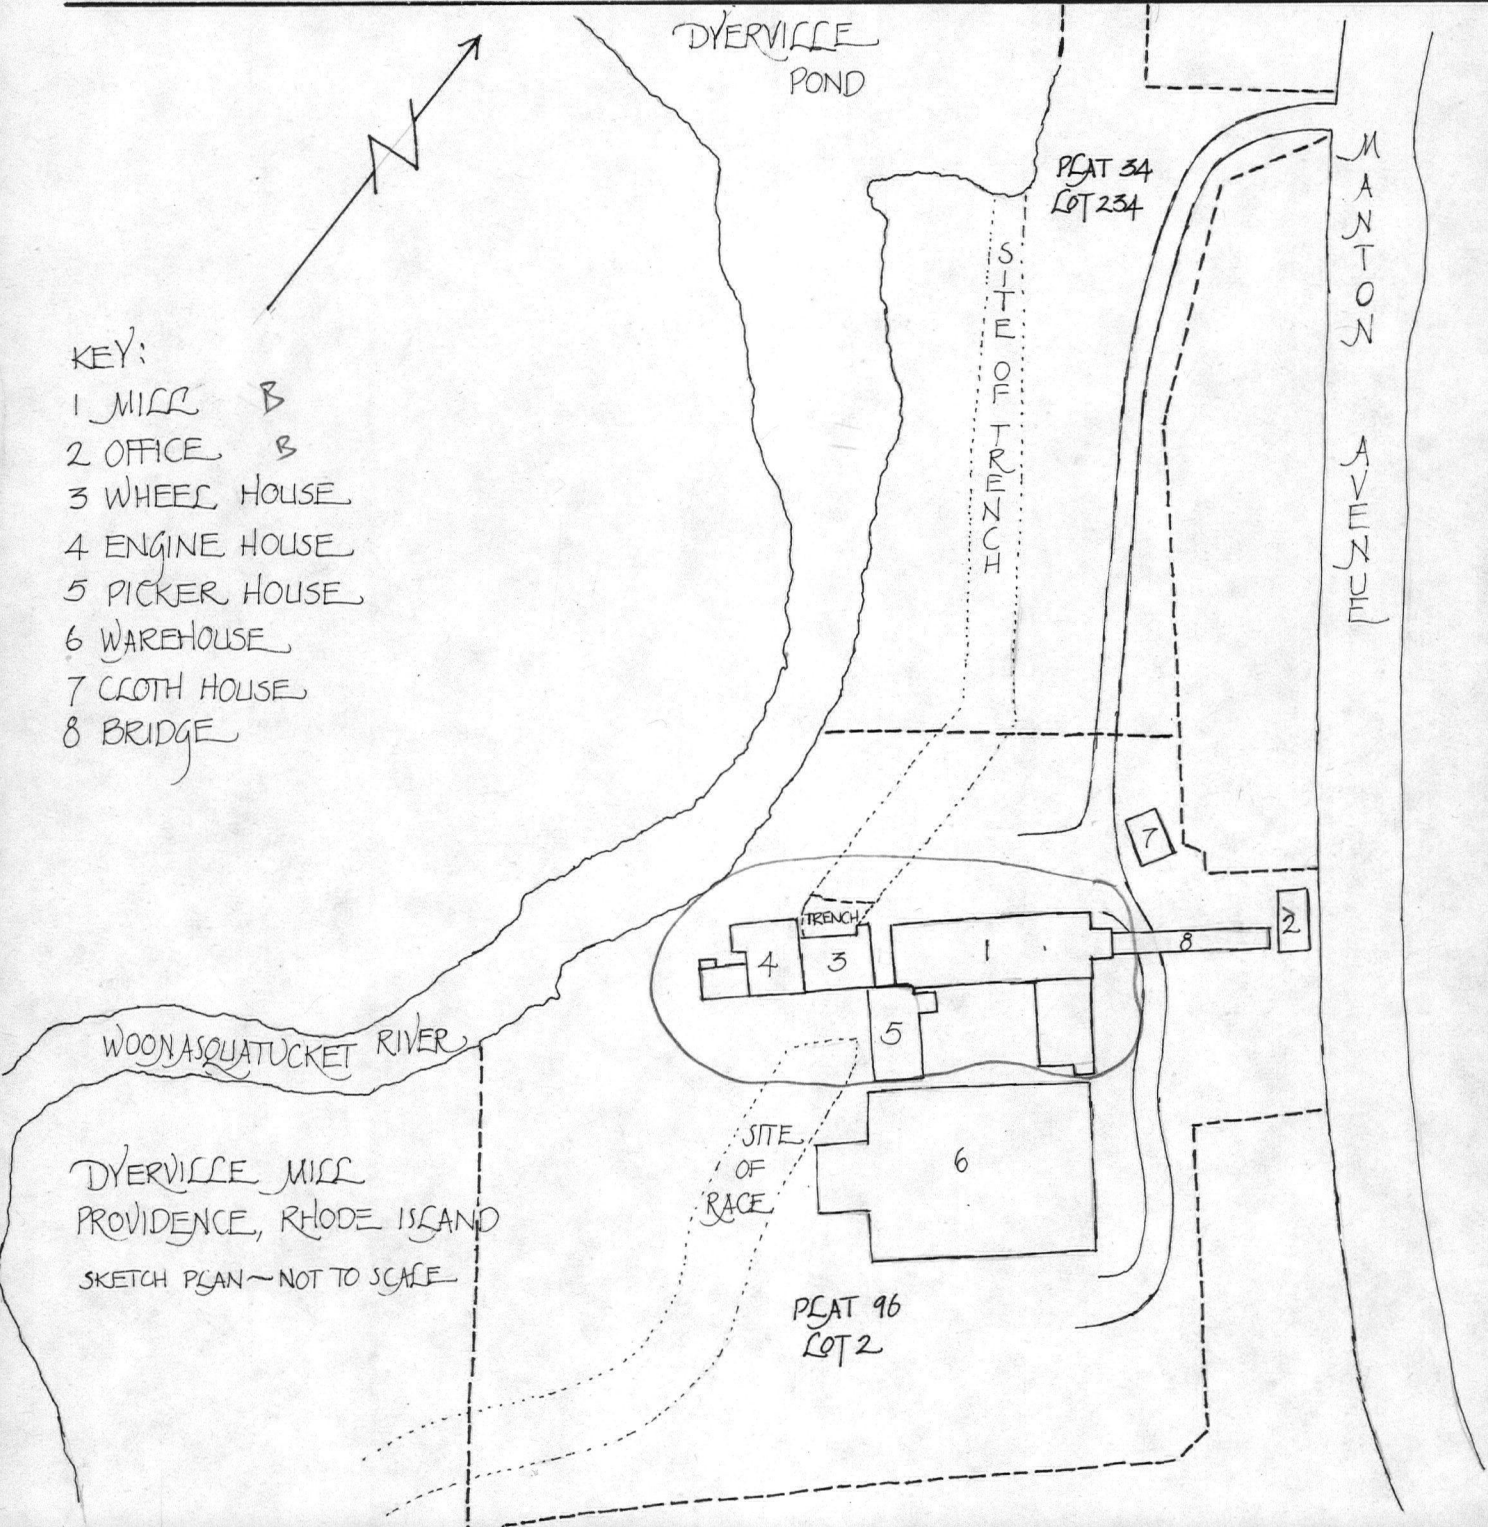 DYERVILLE
POND
N
PLAT 34
LOT 234
MANTON AVENUE
SITE OF TRENCH
KEY:
1 MILL B
2 OFFICE B
3 WHEEL HOUSE
4 ENGINE HOUSE
5 PICKER HOUSE
6 WAREHOUSE
7 CLOTH HOUSE
8 BRIDGE
7
2
TRENCH
4
3
1
8
5
WOONASQUATUCKET RIVER
SITE
OF
RACE
6
DYERVILLE MILL
PROVIDENCE, RHODE ISLAND
SKETCH PLAN~NOT TO SCALE
PLAT 96
LOT 2